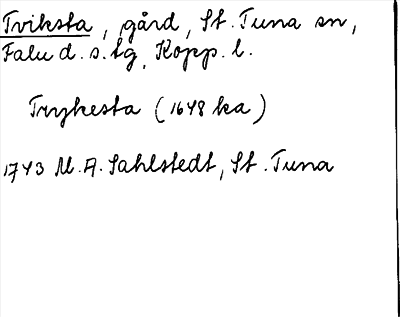 Tviksta, gård, St. Tuna sn,
Falu d. s. tg, Kopp. l.
Trykesta (1648 ka)
1743 M. A. Sahlstedt, St. Tuna